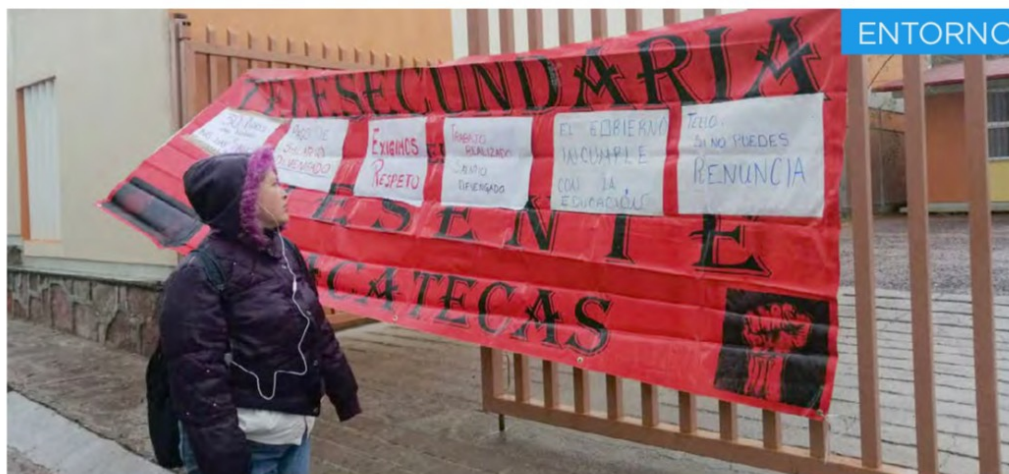 ENTORNO
TELESECUNDARIA
PAGO DE
SALARIO
DEVENGADO
EXIGIMOS
RESPETO
TRABAJO
REALIZADO
SALARIO
DEVENGADO
EL GOBIERNO
INCUMPLE
CON LA
EDUCACIÓN
TELLO:
SI NO PUEDES
RENUNCIA
ESENTE
CATECAS